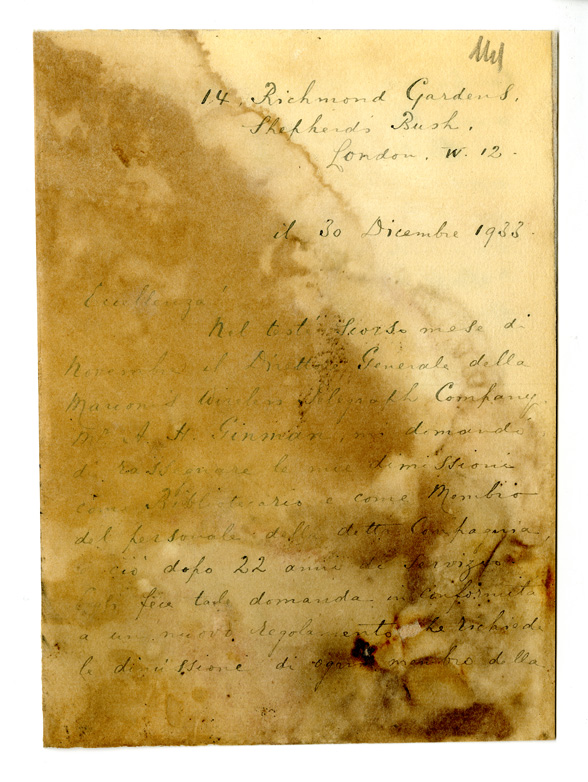 14, Richmond Gardens,
Shepherd's Bush,
London. W. 12.
il 30 Dicembre 1933.
Eccellenza!
Nel testè scorso mese di
Novembre il Direttore Generale della
Marconi's Wireless Telegraph Company,
Mr A. H. Ginman, mi domandò
di rassegnare le mie dimissioni
come Bibliotecario e come Membro
del personale della detta Compagnia,
e ciò dopo 22 anni di servizio
Egli fece tale domanda in conformità
a un nuovo regolamento che richiede
le dimissione di ogni membro della